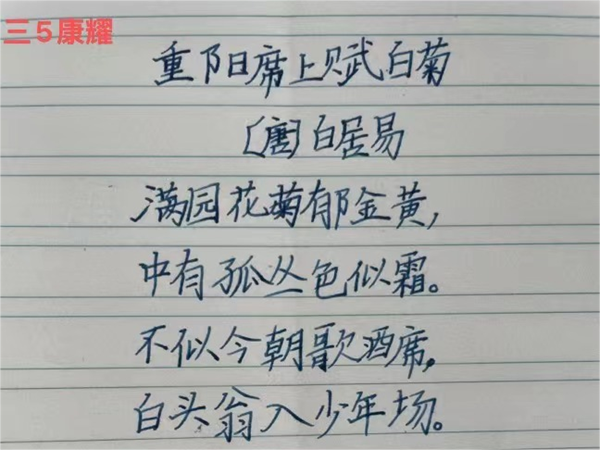 三5康耀
重阳席上赋白菊
[唐]白居易
满园花菊郁金黄,
中有孤丛色似霜。
不似今朝歌酒席,
白头翁入少年场。